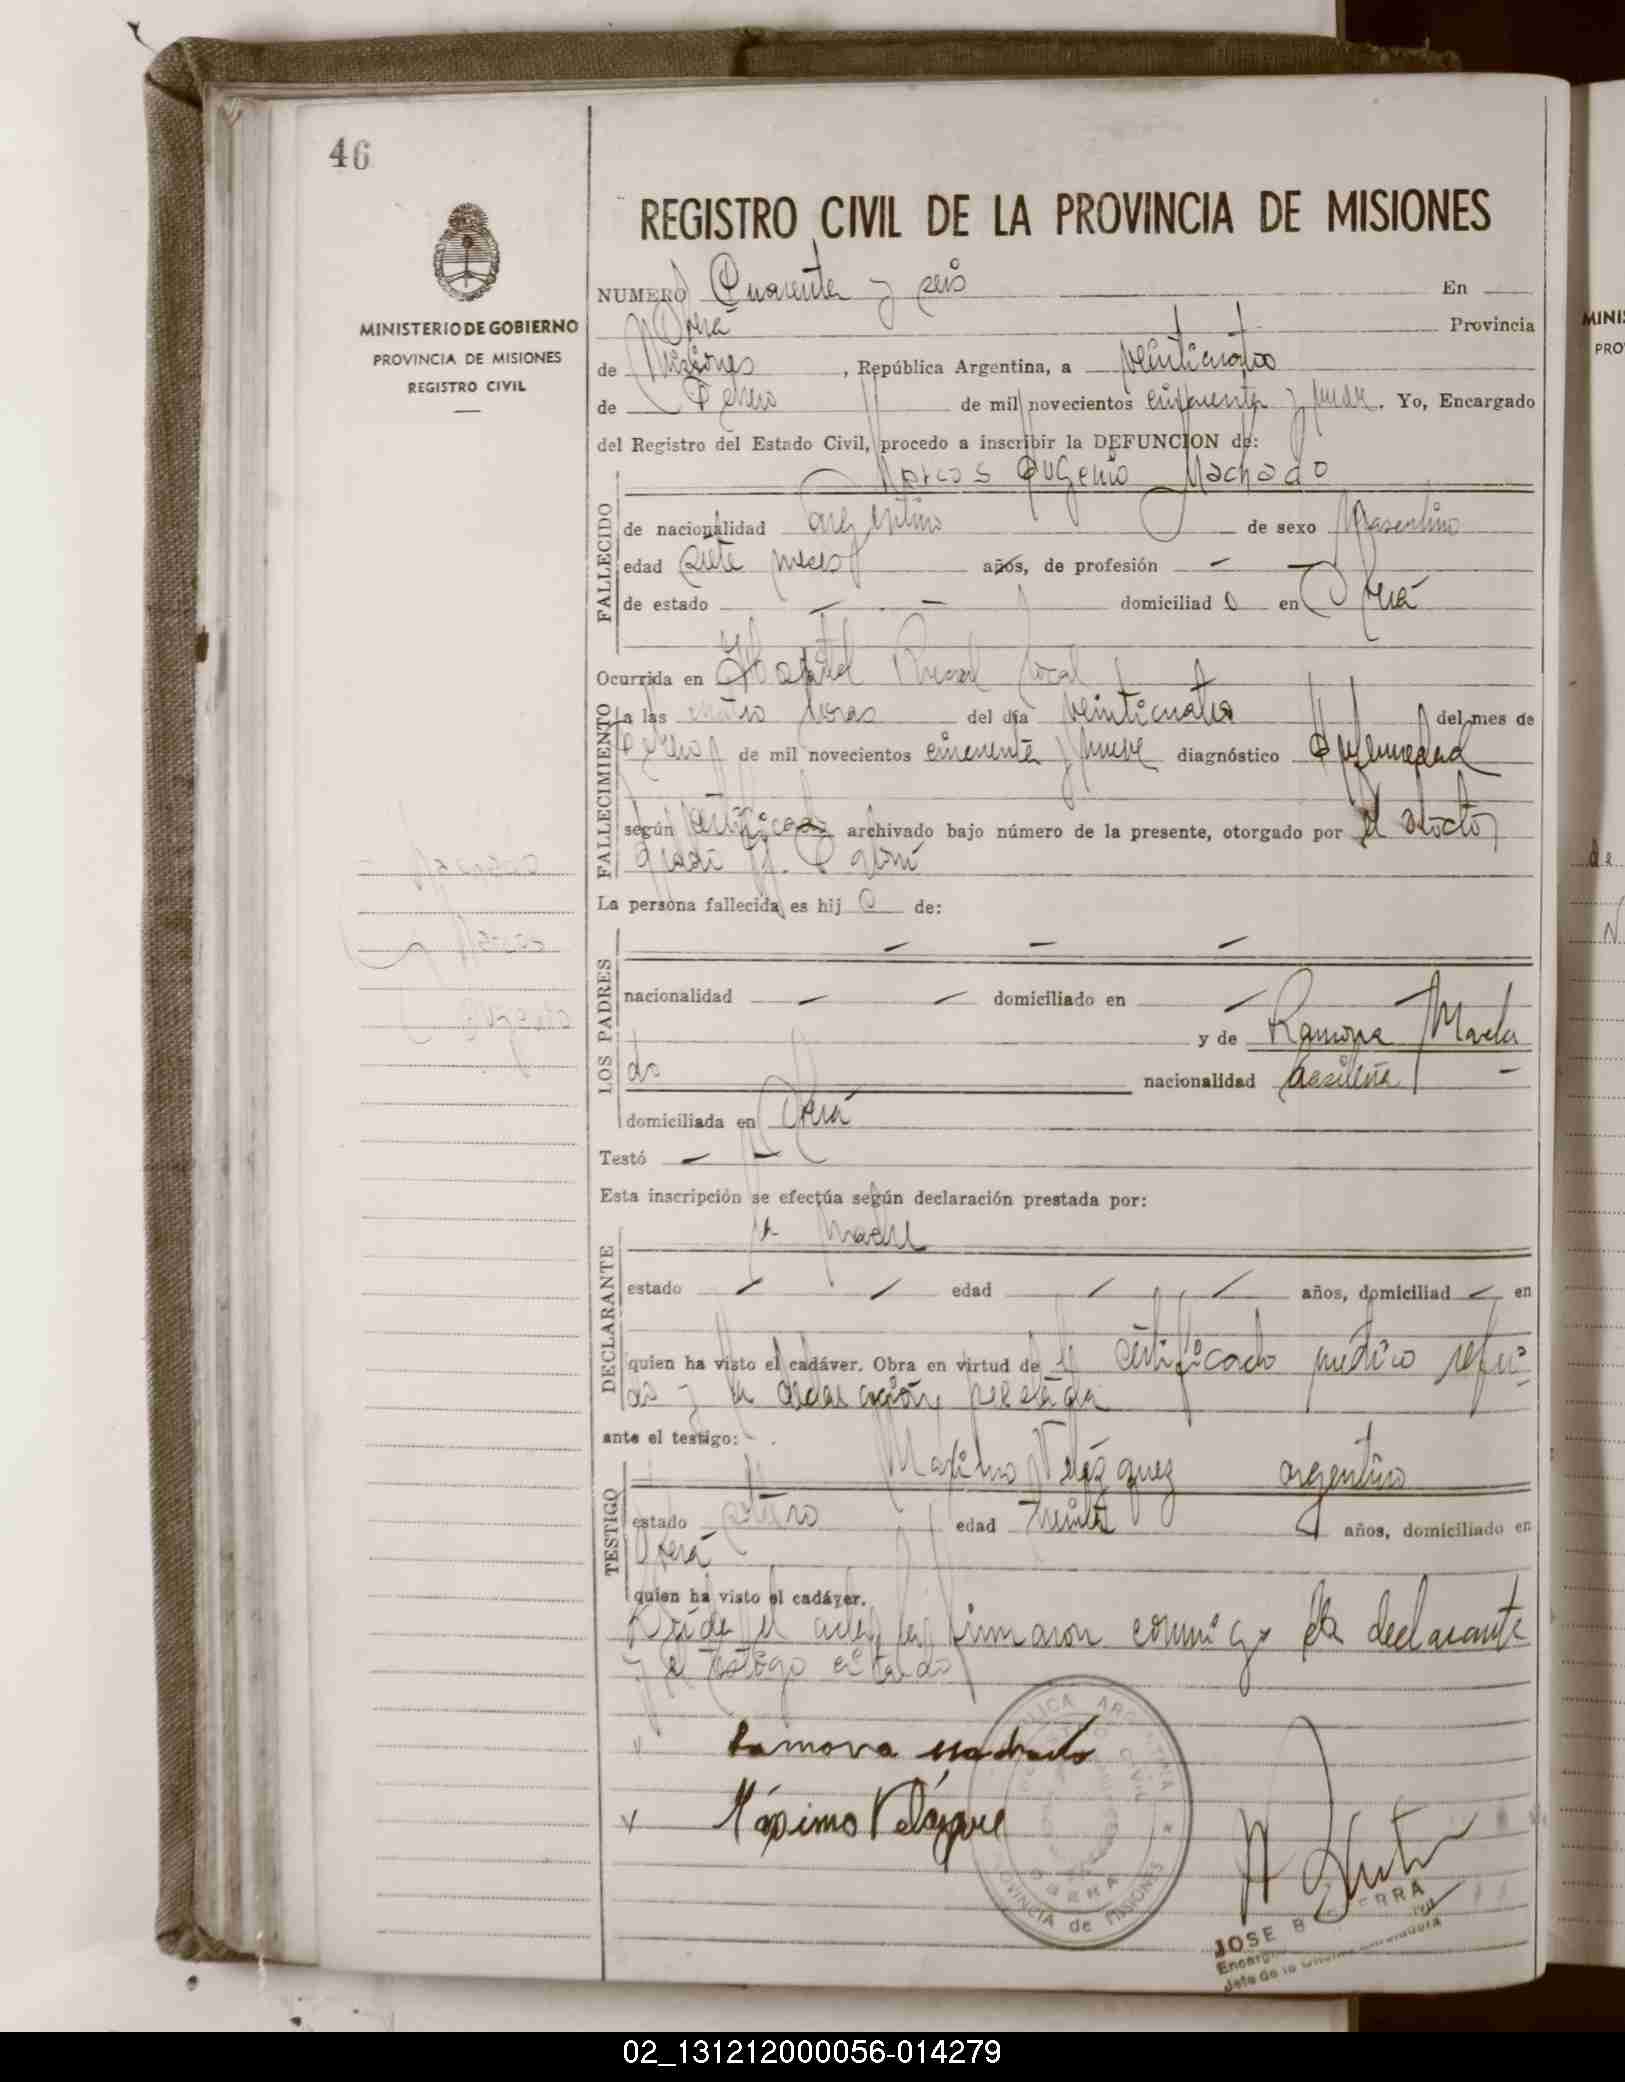 46
REGISTRO CIVIL DE LA PROVINCIA DE MISIONES
MINISTERIO DE GOBIERNO
PROVINCIA DE MISIONES
REGISTRO CIVIL
NUMERO Cuarenta y seis En
Oberá Provincia
de Misiones, República Argentina, a veinticuatro
de de mil novecientos cincuenta y nueve. Yo, Encargado
del Registro del Estado Civil, procedo a inscribir la DEFUNCION de:
Marcos Eugenio Machado
FALLECIDO
de nacionalidad argentino de sexo Masculino
edad siete meses años, de profesión -
de estado - - domiciliado en Oberá
FALLECIMIENTO
Ocurrida en Hospital Rural Local
a las cuatro horas del día veinticuatro del mes de
de mil novecientos cincuenta y nueve diagnóstico Enfermedad
según certificado archivado bajo número de la presente, otorgado por el doctor
La persona fallecida es hijo de:
LOS PADRES
- - -
nacionalidad - - domiciliado en -
y de Ramona Macha
do nacionalidad brasileña -
domiciliada en Oberá
Testó - -
Esta inscripción se efectúa según declaración prestada por:
DECLARANTE
la madre
estado - - edad - - años, domiciliad - en
quien ha visto el cadáver. Obra en virtud de el certificado médico referi-
do y la declaración prestada
ante el testigo:
TESTIGO
Máximo Velázquez argentino
estado soltero edad treinta años, domiciliado en
Oberá
quien ha visto el cadáver.
Leída el acta, la firmaron conmigo la declarante
y el testigo citado
Ramona Machado
Máximo Velázquez
REPUBLICA ARGENTINA
REGISTRO CIVIL
OBERA
PROVINCIA de MISIONES
JOSE B
Jefe de la
02_131212000056-014279